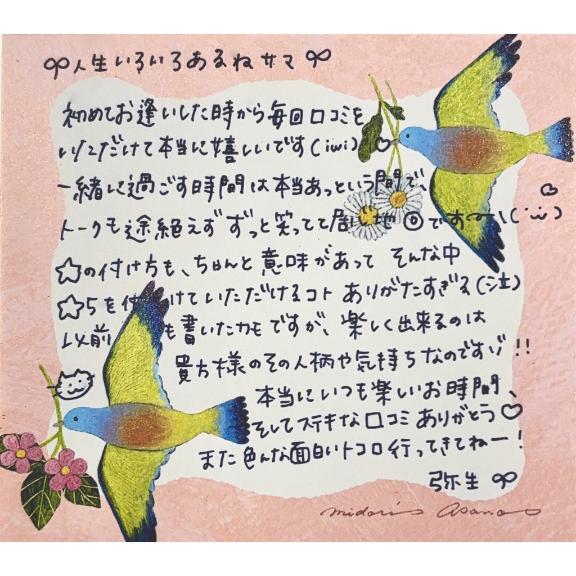 人生いろいろあるねサマ
初めてお逢いした時から毎回口コミを
いただけて本当に嬉しいです(iwi)♡
一緒に過ごす時間は本当あっという間で、
トークも途絶えずずっと笑ってて居心地◎です〜
☆の付け方も、ちゃんと意味があって そんな中
☆5を付けていただけるコト ありがたすぎる(泣)
以前も書いたカモですが、楽しく出来るのは
貴方様のその人柄や気持ちなのですゾ!!
本当にいつも楽しいお時間、
そしてステキな口コミありがとう♡
また色んな面白いトコロ行ってきてねー!
弥生
midori asano